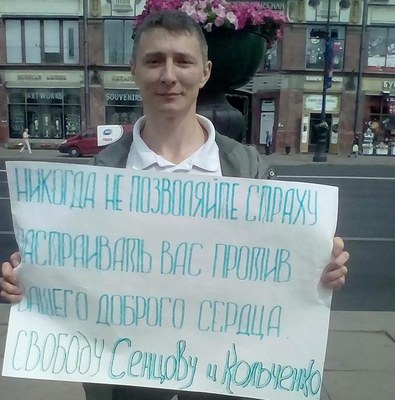 ARTWORKS
SOUVENIRS
НИКОГДА НЕ ПОЗВОЛЯЙТЕ СТРАХУ
НАСТРАИВАТЬ ВАС ПРОТИВ
ВАШЕГО ДОБРОГО СЕРДЦА
СВОБОДУ Сенцову и Кольченко